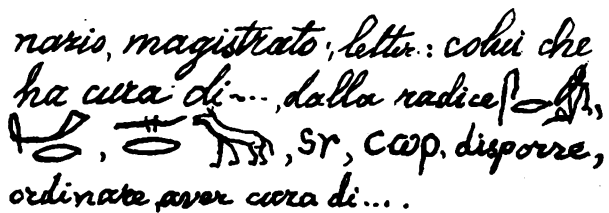 nario, magistrato; letter.: colui che
ha cura di...., dalla radice
, sr, cωp. disporre,
ordinare, aver cura di... .